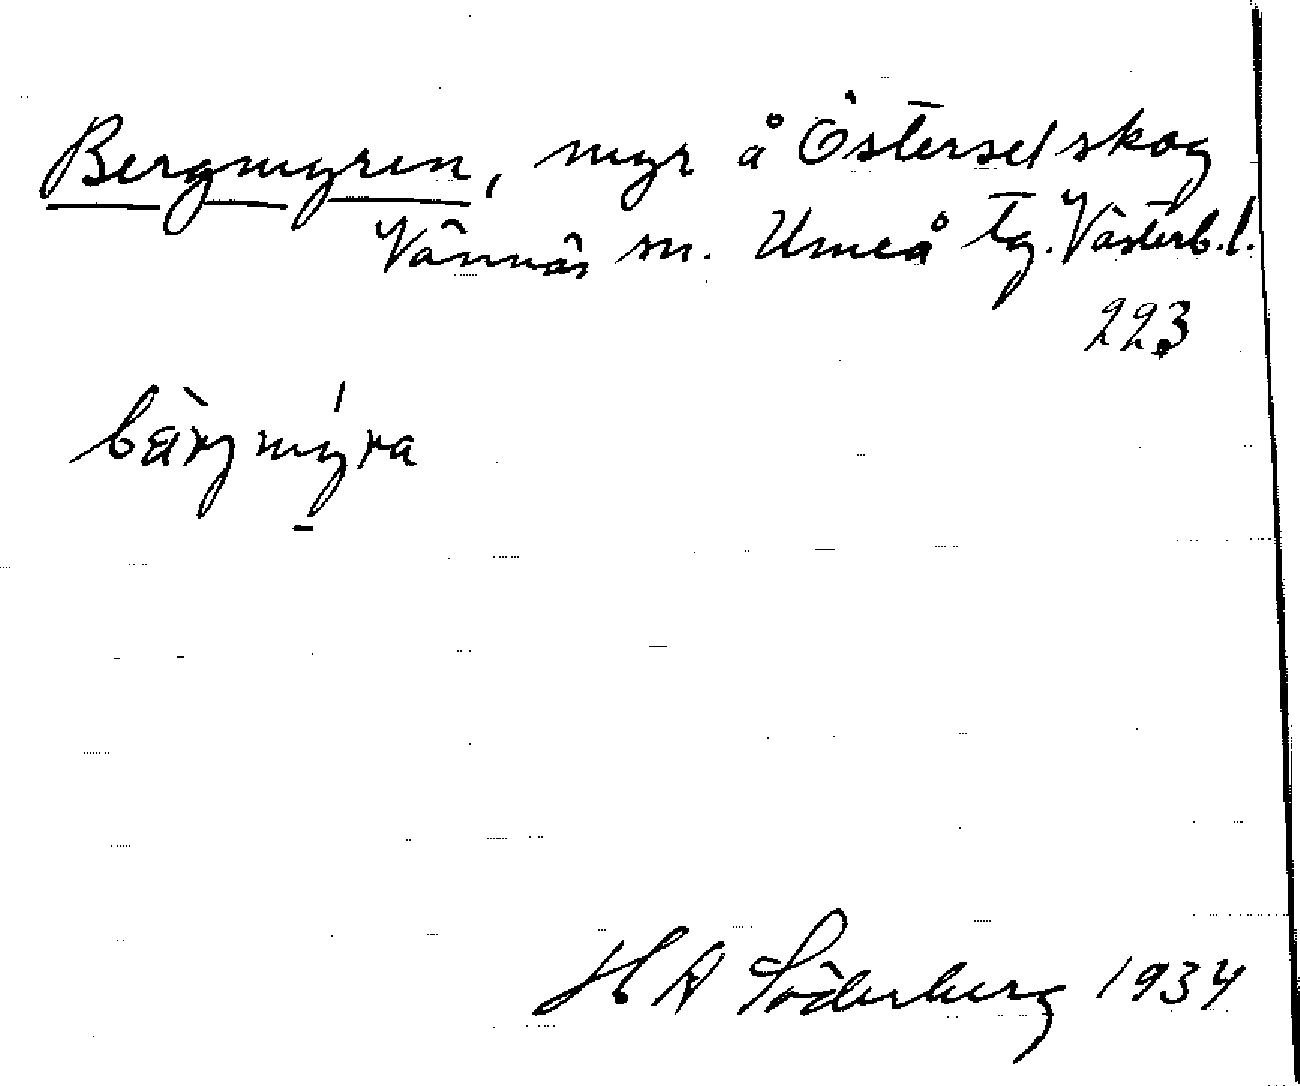 Bergmyren, myr å Österselskog
Vännäs sn. Umeå tg. Västerb. l.
223
bärjmyra
H A Söderberg 1934